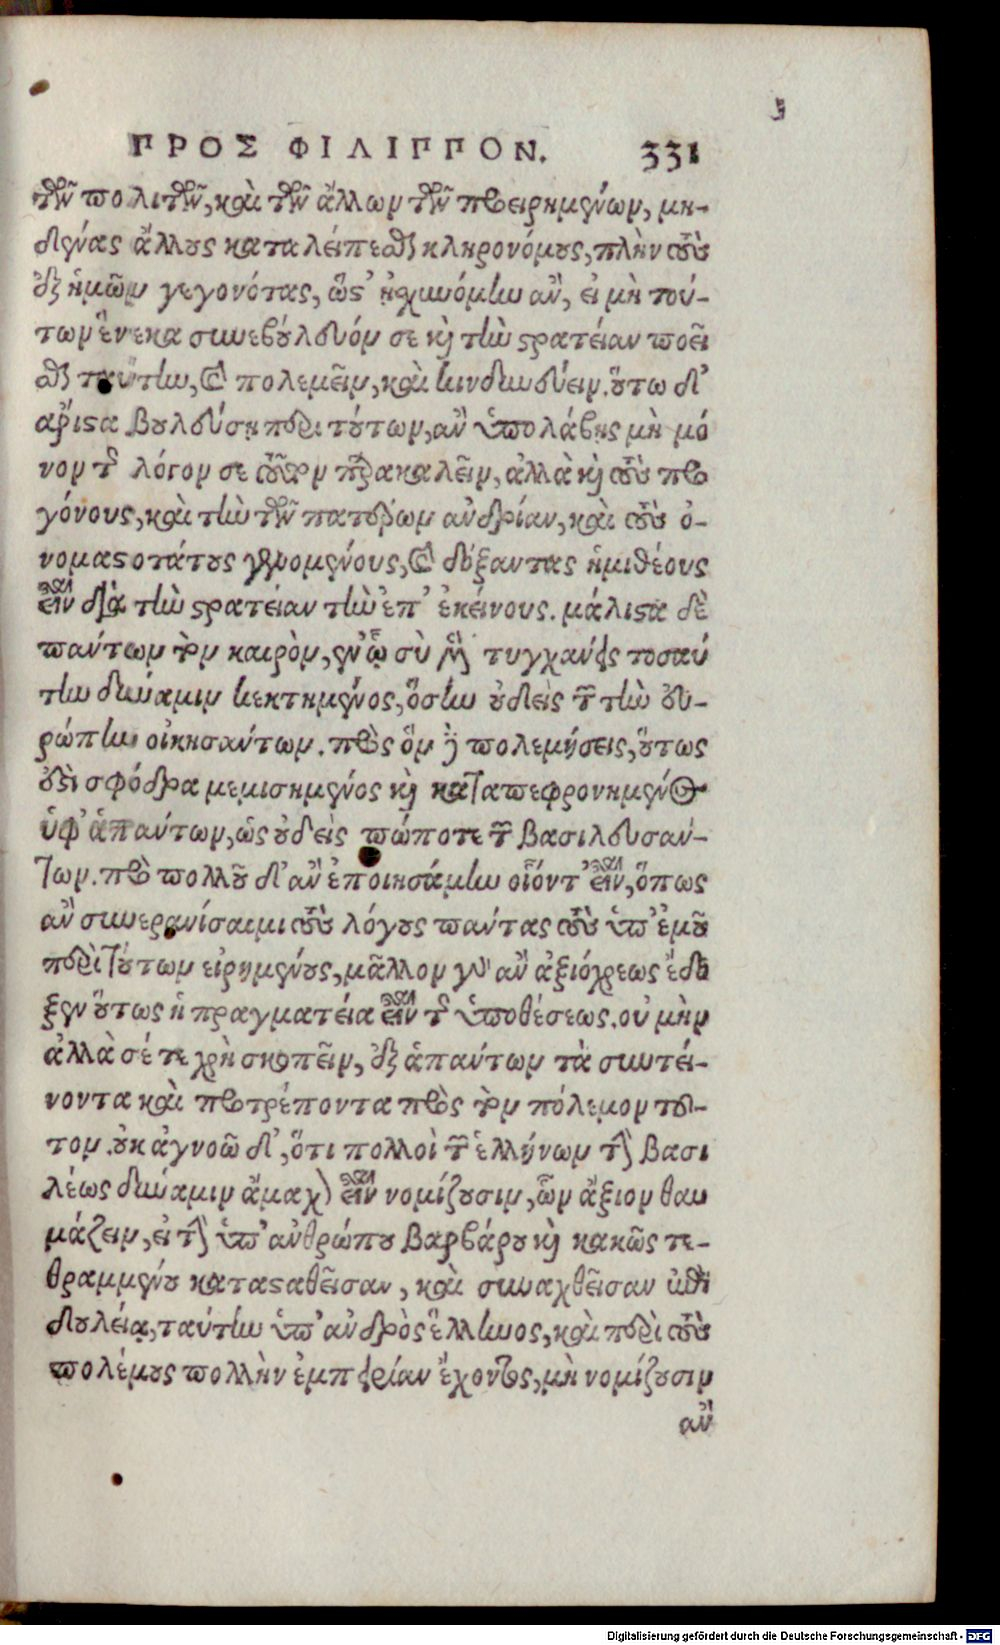 ΠΡΟΣ ΦΙΛΙΠΠΟΝ. 331
τῶν πολιτῶν, καὶ τῶν ἄλλων τῶν προειρημένων, μη-
δένας ἄλλους καταλείπεσθαι κληρονόμους, πλὴν τοὺς
ἐξ ἡμῶν γεγονότας, ὥστ' ᾐσχυνόμην ἂν, εἰ μὴ τού-
των ἕνεκα συνεβούλευόν σε καὶ τὴν στρατείαν ποεῖ
σθαι ταύτην, καὶ πολεμεῖν, καὶ κινδυνεύειν. οὕτω δ'
ἄριστα βουλεύσῃ περὶ τούτων, ἂν ὑπολάβῃς μὴ μό
νον τὸν λόγον σε τοῦτον παρακαλεῖν, ἀλλὰ καὶ τοὺς προ
γόνους, καὶ τὴν τῶν πατέρων ἀνδρίαν, καὶ τοὺς ὀ-
νομαστοτάτους γενομένους, καὶ δόξαντας ἡμιθέους
εἶναι διὰ τὴν στρατείαν τὴν ἐπ' ἐκείνους. μάλιστα δὲ
πάντων τὸν καιρὸν, ἐν ᾧ σὺ μὲν τυγχάνεις τοσαύ
την δύναμιν κεκτημένος, ὅσην οὐδεὶς τῶν τὴν εὐ-
ρώπην οἰκησάντων. πρὸς ὃν δὲ πολεμήσεις, οὕτως
ἐστὶ σφόδρα μεμισημένος καὶ καταπεφρονημένος
ὑφ' ἁπάντων, ὡς οὐδεὶς πώποτε τῶν βασιλευσάν-
των. πρὸ πολλοῦ δ' ἂν ἐποιησάμην οἷόντ' εἶναι, ὅπως
ἂν συνερανίσαιμι τοὺς λόγους πάντας τοὺς ὑπ' ἐμοῦ
περὶ τούτων εἰρημένους, μᾶλλον γὰρ ἂν ἀξιόχρεως ἔδο
ξεν οὕτως ἡ πραγματεία εἶναι τῆς ὑποθέσεως. οὐ μὴν
ἀλλὰ σέ τε χρὴ σκοπεῖν, ἐξ ἁπάντων τὰ συντεί-
νοντα καὶ προτρέποντα πρὸς τὸν πόλεμον τοῦ-
τον. οὐκ ἀγνοῶ δ', ὅτι πολλοὶ τῶν ἑλλήνων τὴν βασι
λέως δύναμιν ἄμαχον εἶναι νομίζουσιν, ὧν ἄξιον θαυ
μάζειν, εἰ τὴν ὑπ' ἀνθρώπου βαρβάρου καὶ κακῶς τε-
θραμμένου κατασταθεῖσαν, καὶ συναχθεῖσαν ἐπὶ
δουλείᾳ, ταύτην ὑπ' ἀνδρὸς ἕλληνος, καὶ περὶ τοὺς
πολέμους πολλὴν ἐμπειρίαν ἔχοντος, μὴ νομίζουσιν
ἂν
Digitalisierung gefördert durch die Deutsche Forschungsgemeinschaft - DFG